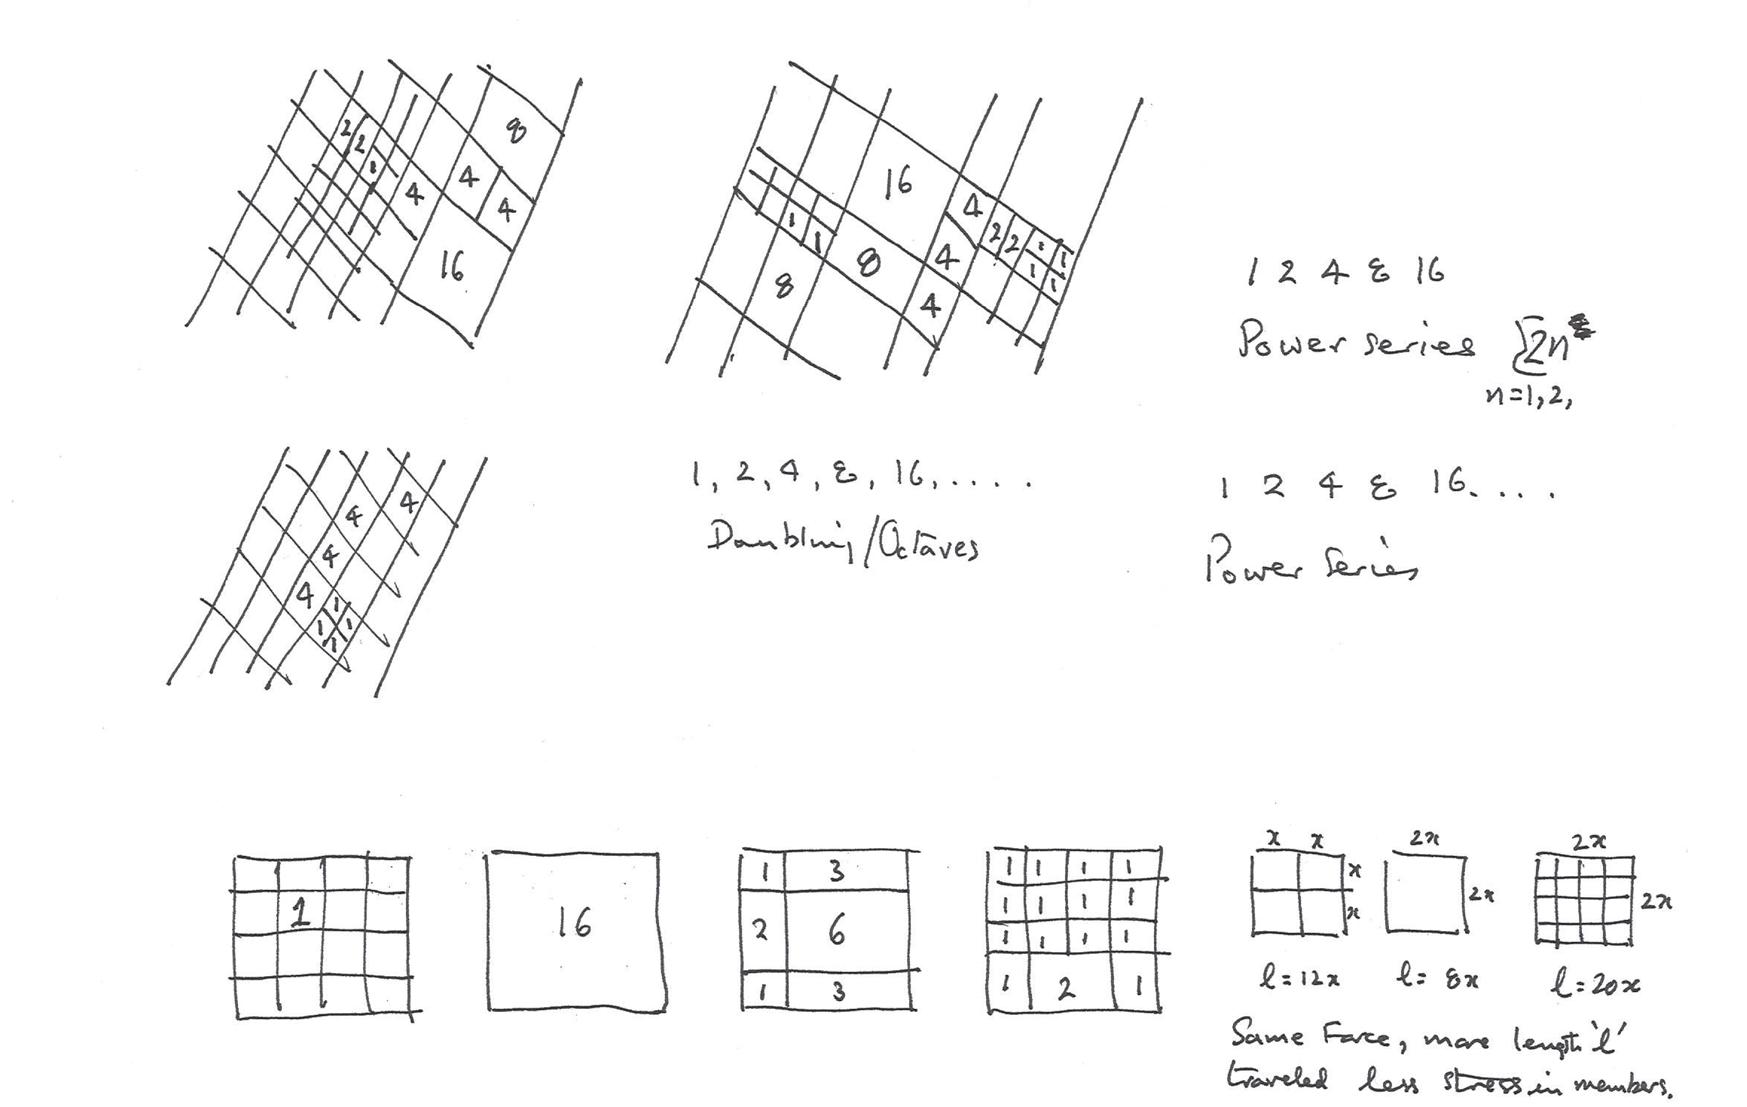 8
2
2
1
4
4
4
16
16
4
2 2 1 1
1 1
1 1
8
4
8
4
1 2 4 8 16
Power series ∑2n
n=1,2,
4
4
4
4
1
1 1
1
1, 2, 4, 8, 16, . . . .
Doubling/Octaves
1 2 4 8 16. . . .
Power Series
1
16
1 3
2 6
1 3
1 1 1 1
1 1 1 1
1 1 1 1
1 2 1
x x
x
x
l=12x
2x
2x
l= 8x
2x
2x
l=20x
Same Force, more length 'l'
traveled less stress in members.